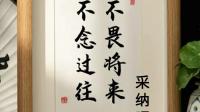 不畏将来
不念过往
采纳